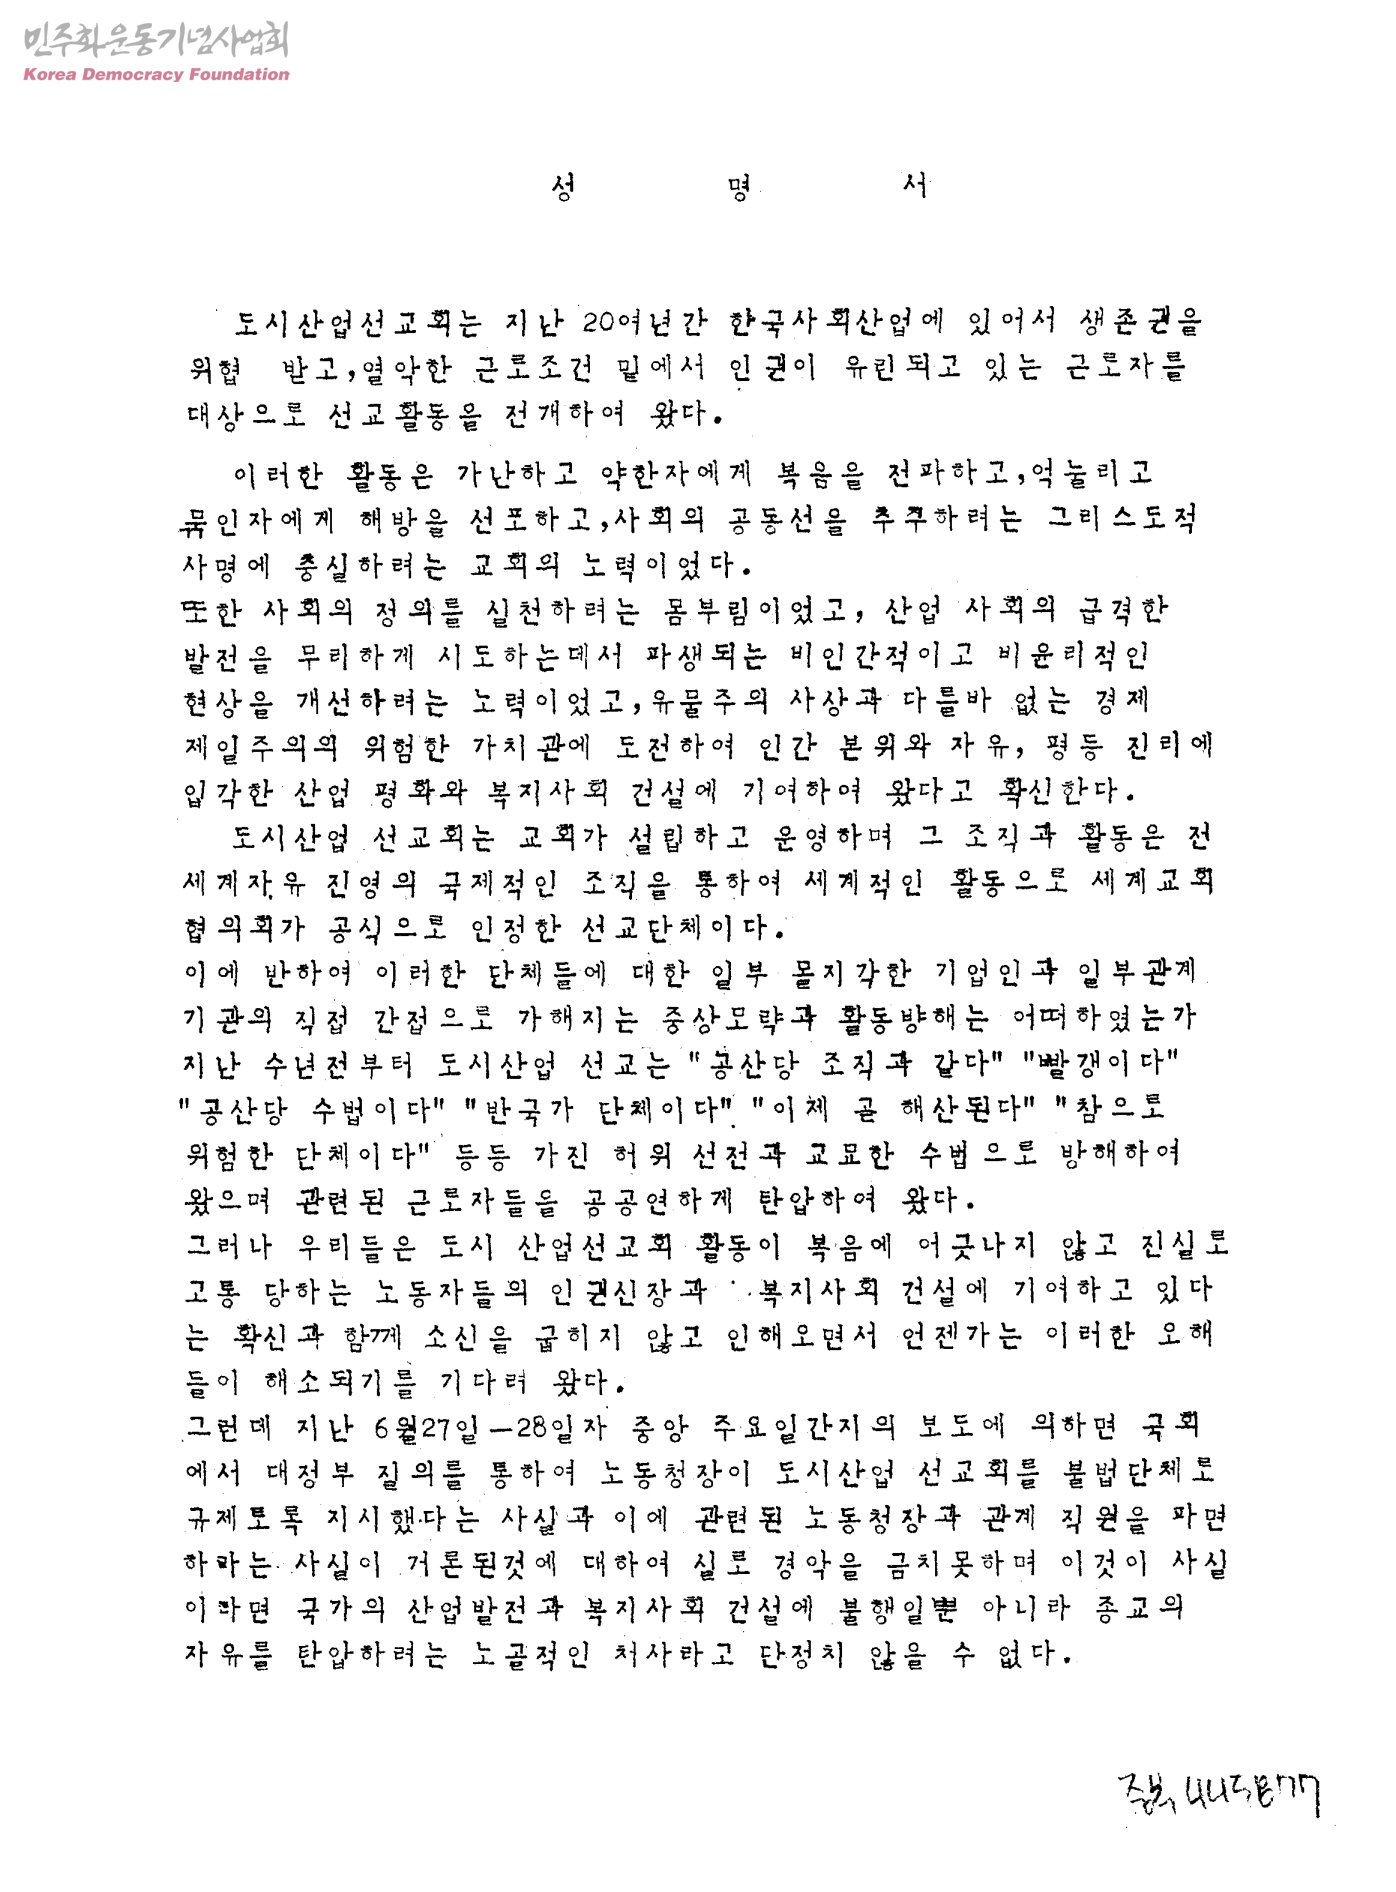 민주화운동기념사업회
Korea Democracy Foundation
성 명 서
도시산업선교회는 지난 20여년간 한국사회산업에 있어서 생존권을
위협 받고,열악한 근로조건 밑에서 인권이 유린되고 있는 근로자를
대상으로 선교활동을 전개하여 왔다.
이러한 활동은 가난하고 약한자에게 복음을 전파하고,억눌리고
묶인자에게 해방을 선포하고,사회의 공동선을 추구하려는 그리스도적
사명에 충실하려는 교회의 노력이었다.
또한 사회의 정의를 실천하려는 몸부림이었고, 산업 사회의 급격한
발전을 무리하게 시도하는데서 파생되는 비인간적이고 비윤리적인
현상을 개선하려는 노력이었고,유물주의 사상과 다를바 없는 경제
제일주의의 위험한 가치관에 도전하여 인간 본위와 자유, 평등 진리에
입각한 산업 평화와 복지사회 건설에 기여하여 왔다고 확신한다.
도시산업 선교회는 교회가 설립하고 운영하며 그 조직과 활동은 전
세계자유 진영의 국제적인 조직을 통하여 세계적인 활동으로 세계교회
협의회가 공식으로 인정한 선교단체이다.
이에 반하여 이러한 단체들에 대한 일부 몰지각한 기업인과 일부관계
기관의 직접 간접으로 가해지는 중상모략과 활동방해는 어떠하였는가
지난 수년전부터 도시산업 선교는 "공산당 조직과 같다" "빨갱이다"
"공산당 수법이다" "반국가 단체이다" "이제 곧 해산된다" "참으로
위험한 단체이다" 등등 가진 허위 선전과 교묘한 수법으로 방해하여
왔으며 관련된 근로자들을 공공연하게 탄압하여 왔다.
그러나 우리들은 도시 산업선교회 활동이 복음에 어긋나지 않고 진실로
고통 당하는 노동자들의 인권신장과 복지사회 건설에 기여하고 있다
는 확신과 함께 소신을 굽히지 않고 인해오면서 언젠가는 이러한 오해
들이 해소되기를 기다려 왔다.
그런데 지난 6월27일-28일자 중앙 주요일간지의 보도에 의하면 국회
에서 대정부 질의를 통하여 노동청장이 도시산업 선교회를 불법단체로
규제토록 지시했다는 사실과 이에 관련된 노동청장과 관계 직원을 파면
하라는 사실이 거론된것에 대하여 실로 경악을 금치못하며 이것이 사실
이라면 국가의 산업발전과 복지사회 건설에 불행일뿐 아니라 종교의
자유를 탄압하려는 노골적인 처사라고 단정치 않을 수 없다.
중복